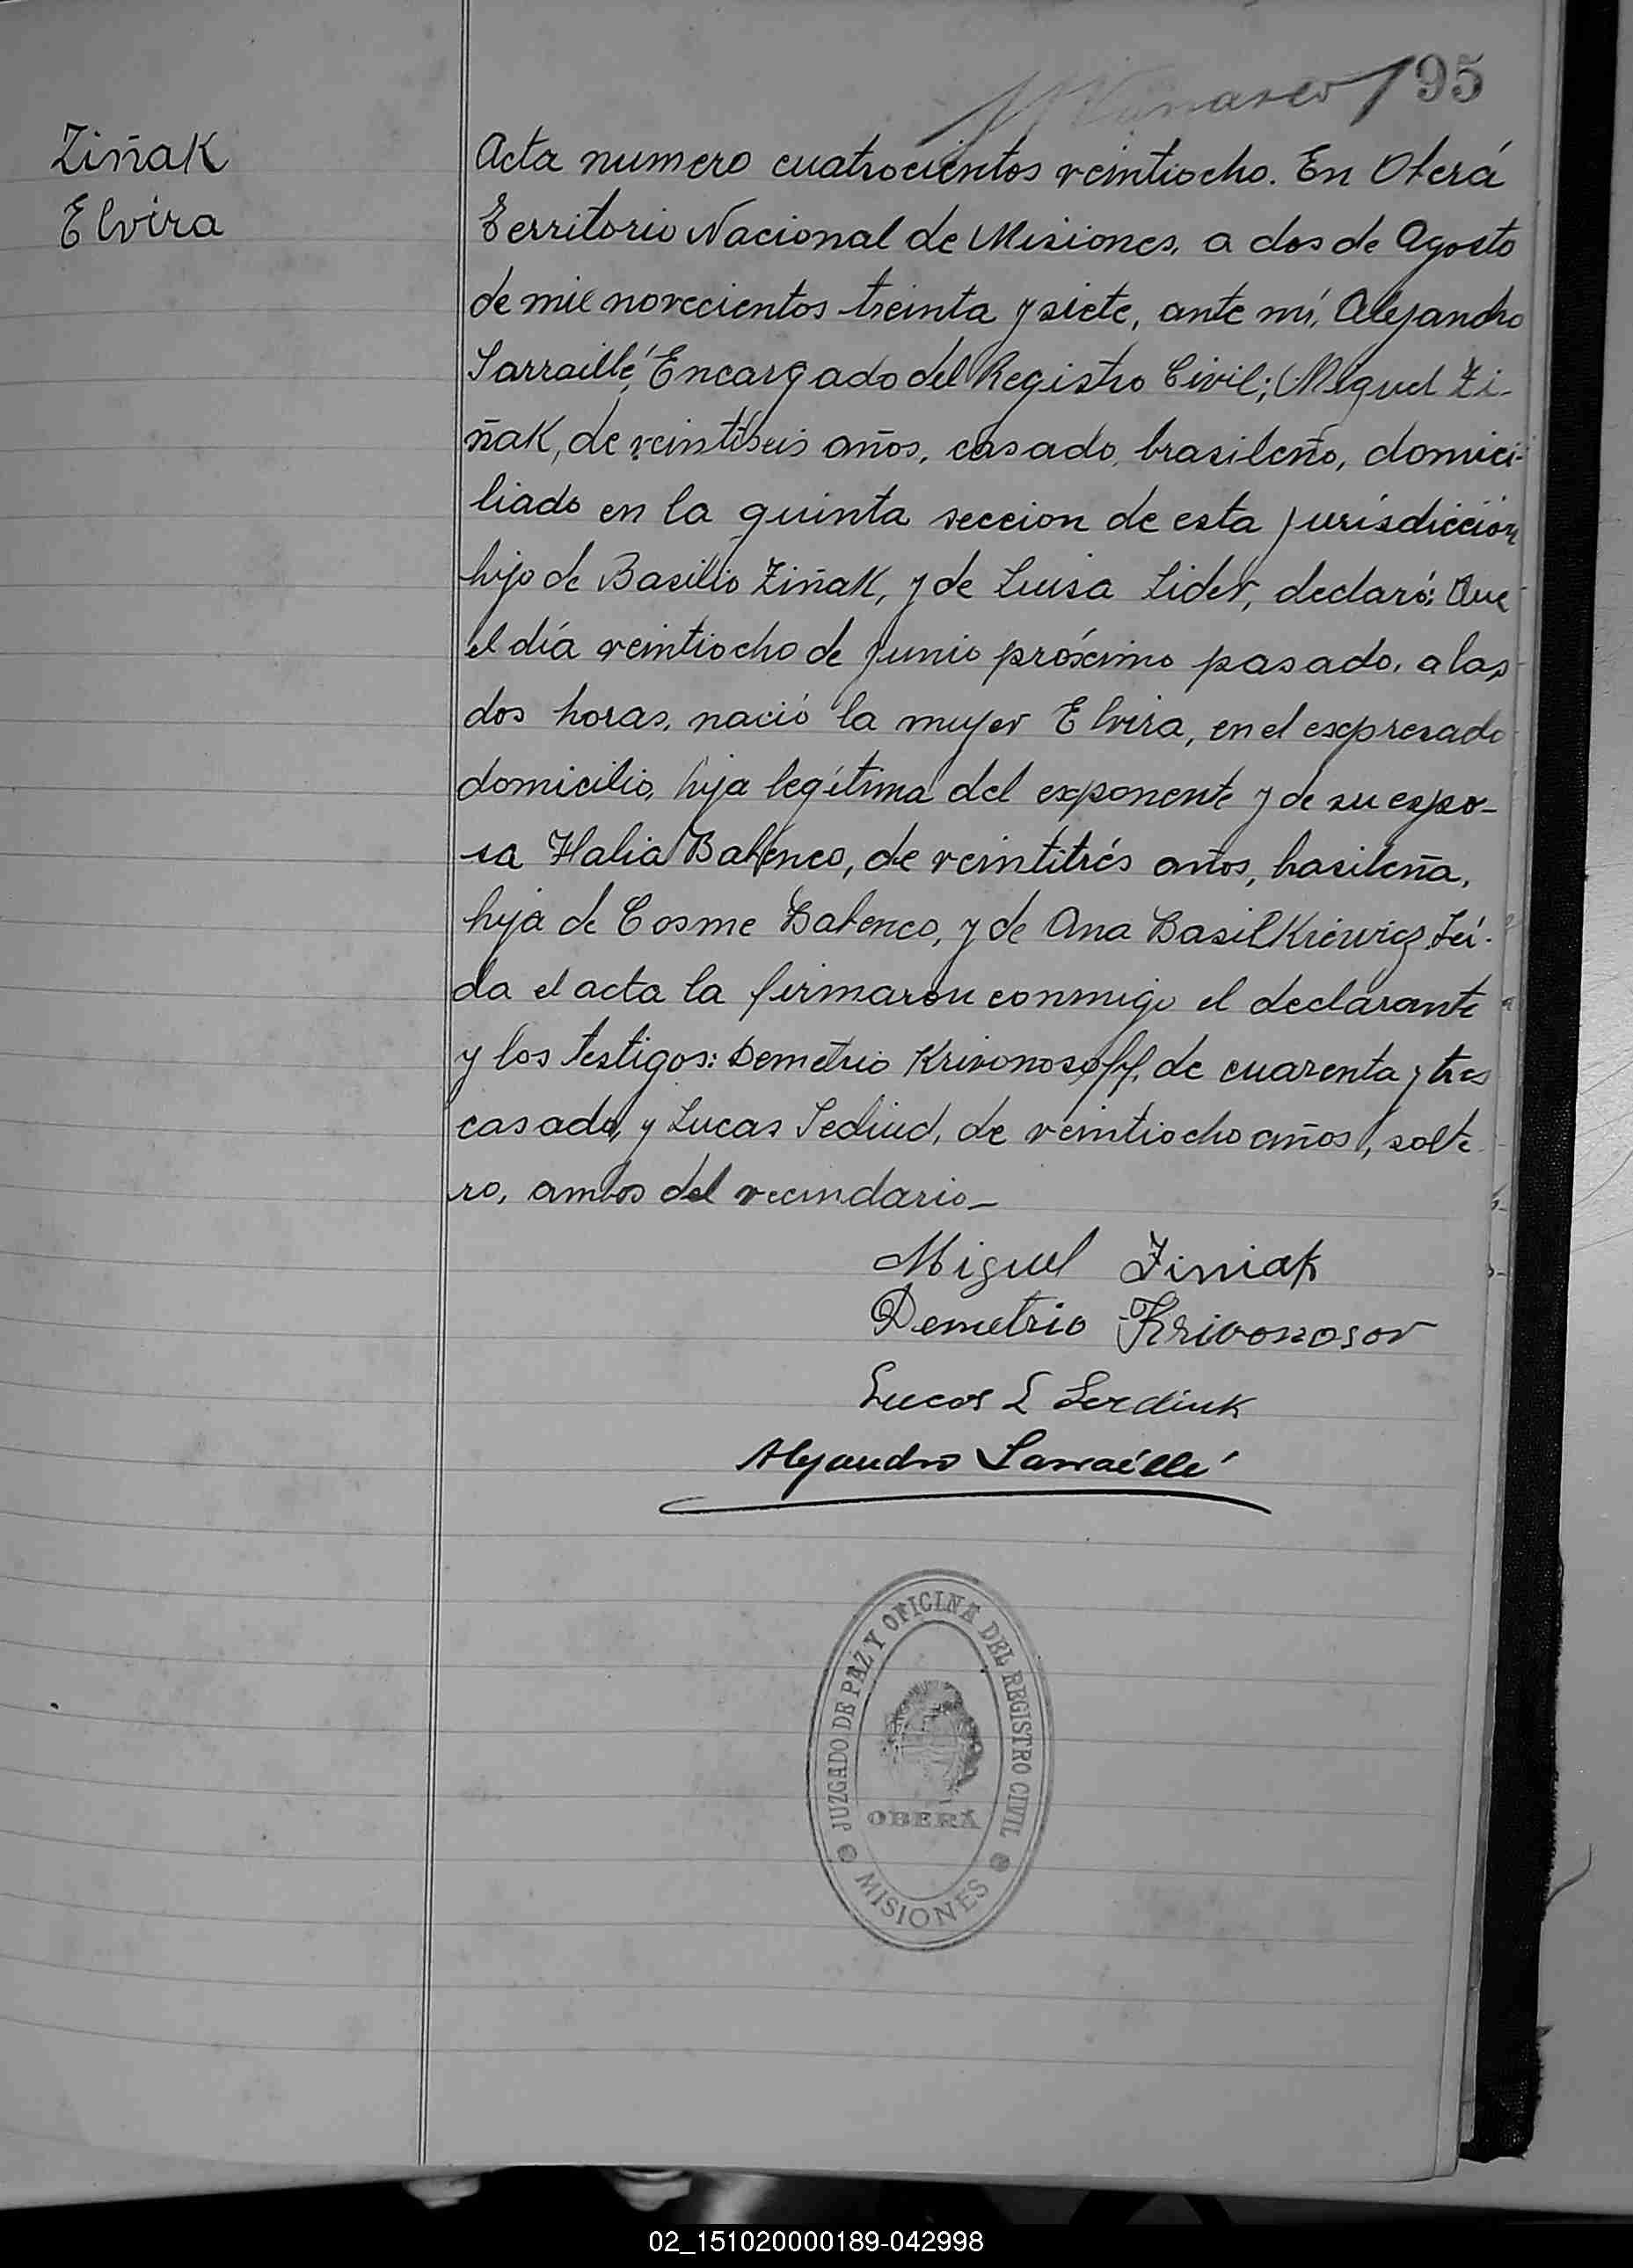 195
Ziñak
Elvira
Acta numero cuatrocientos veintiocho. En Oberá
Territorio Nacional de Misiones, a dos de Agosto
de mil novecientos treinta y siete, ante mí, Alejandro
Sarraillé, Encargado del Registro Civil; Miguel Zi-
ñak, de veintiseis años, casado, brasileño, domici-
liado en la quinta seccion de esta jurisdicción
hijo de Basilio Ziñak, y de Luisa Lider, declaró: Que
el día veintiocho de Junio próximo pasado, a las
dos horas, nació la mujer Elvira, en el expresado
domicilio, hija legítima del exponente y de su espo-
sa Halia Babenco, de veintitrés años, brasileña,
hija de Cosme Babenco, y de Ana Basilkiewicz. Leí-
da el acta la firmaron conmigo el declarante
y los testigos: Demetrio Krivonosoff, de cuarenta y tres
casado, y Lucas Sediud, de veintiocho años, solte
ro, ambos del vecindario_
Miguel Ziniak
Demetrio Krivonosov
Lucas L Serdiuk
Alejandro Sarraillé
JUZGADO DE PAZ Y OFICINA DEL REGISTRO CIVIL
OBERÁ
MISIONES
02_151020000189-042998